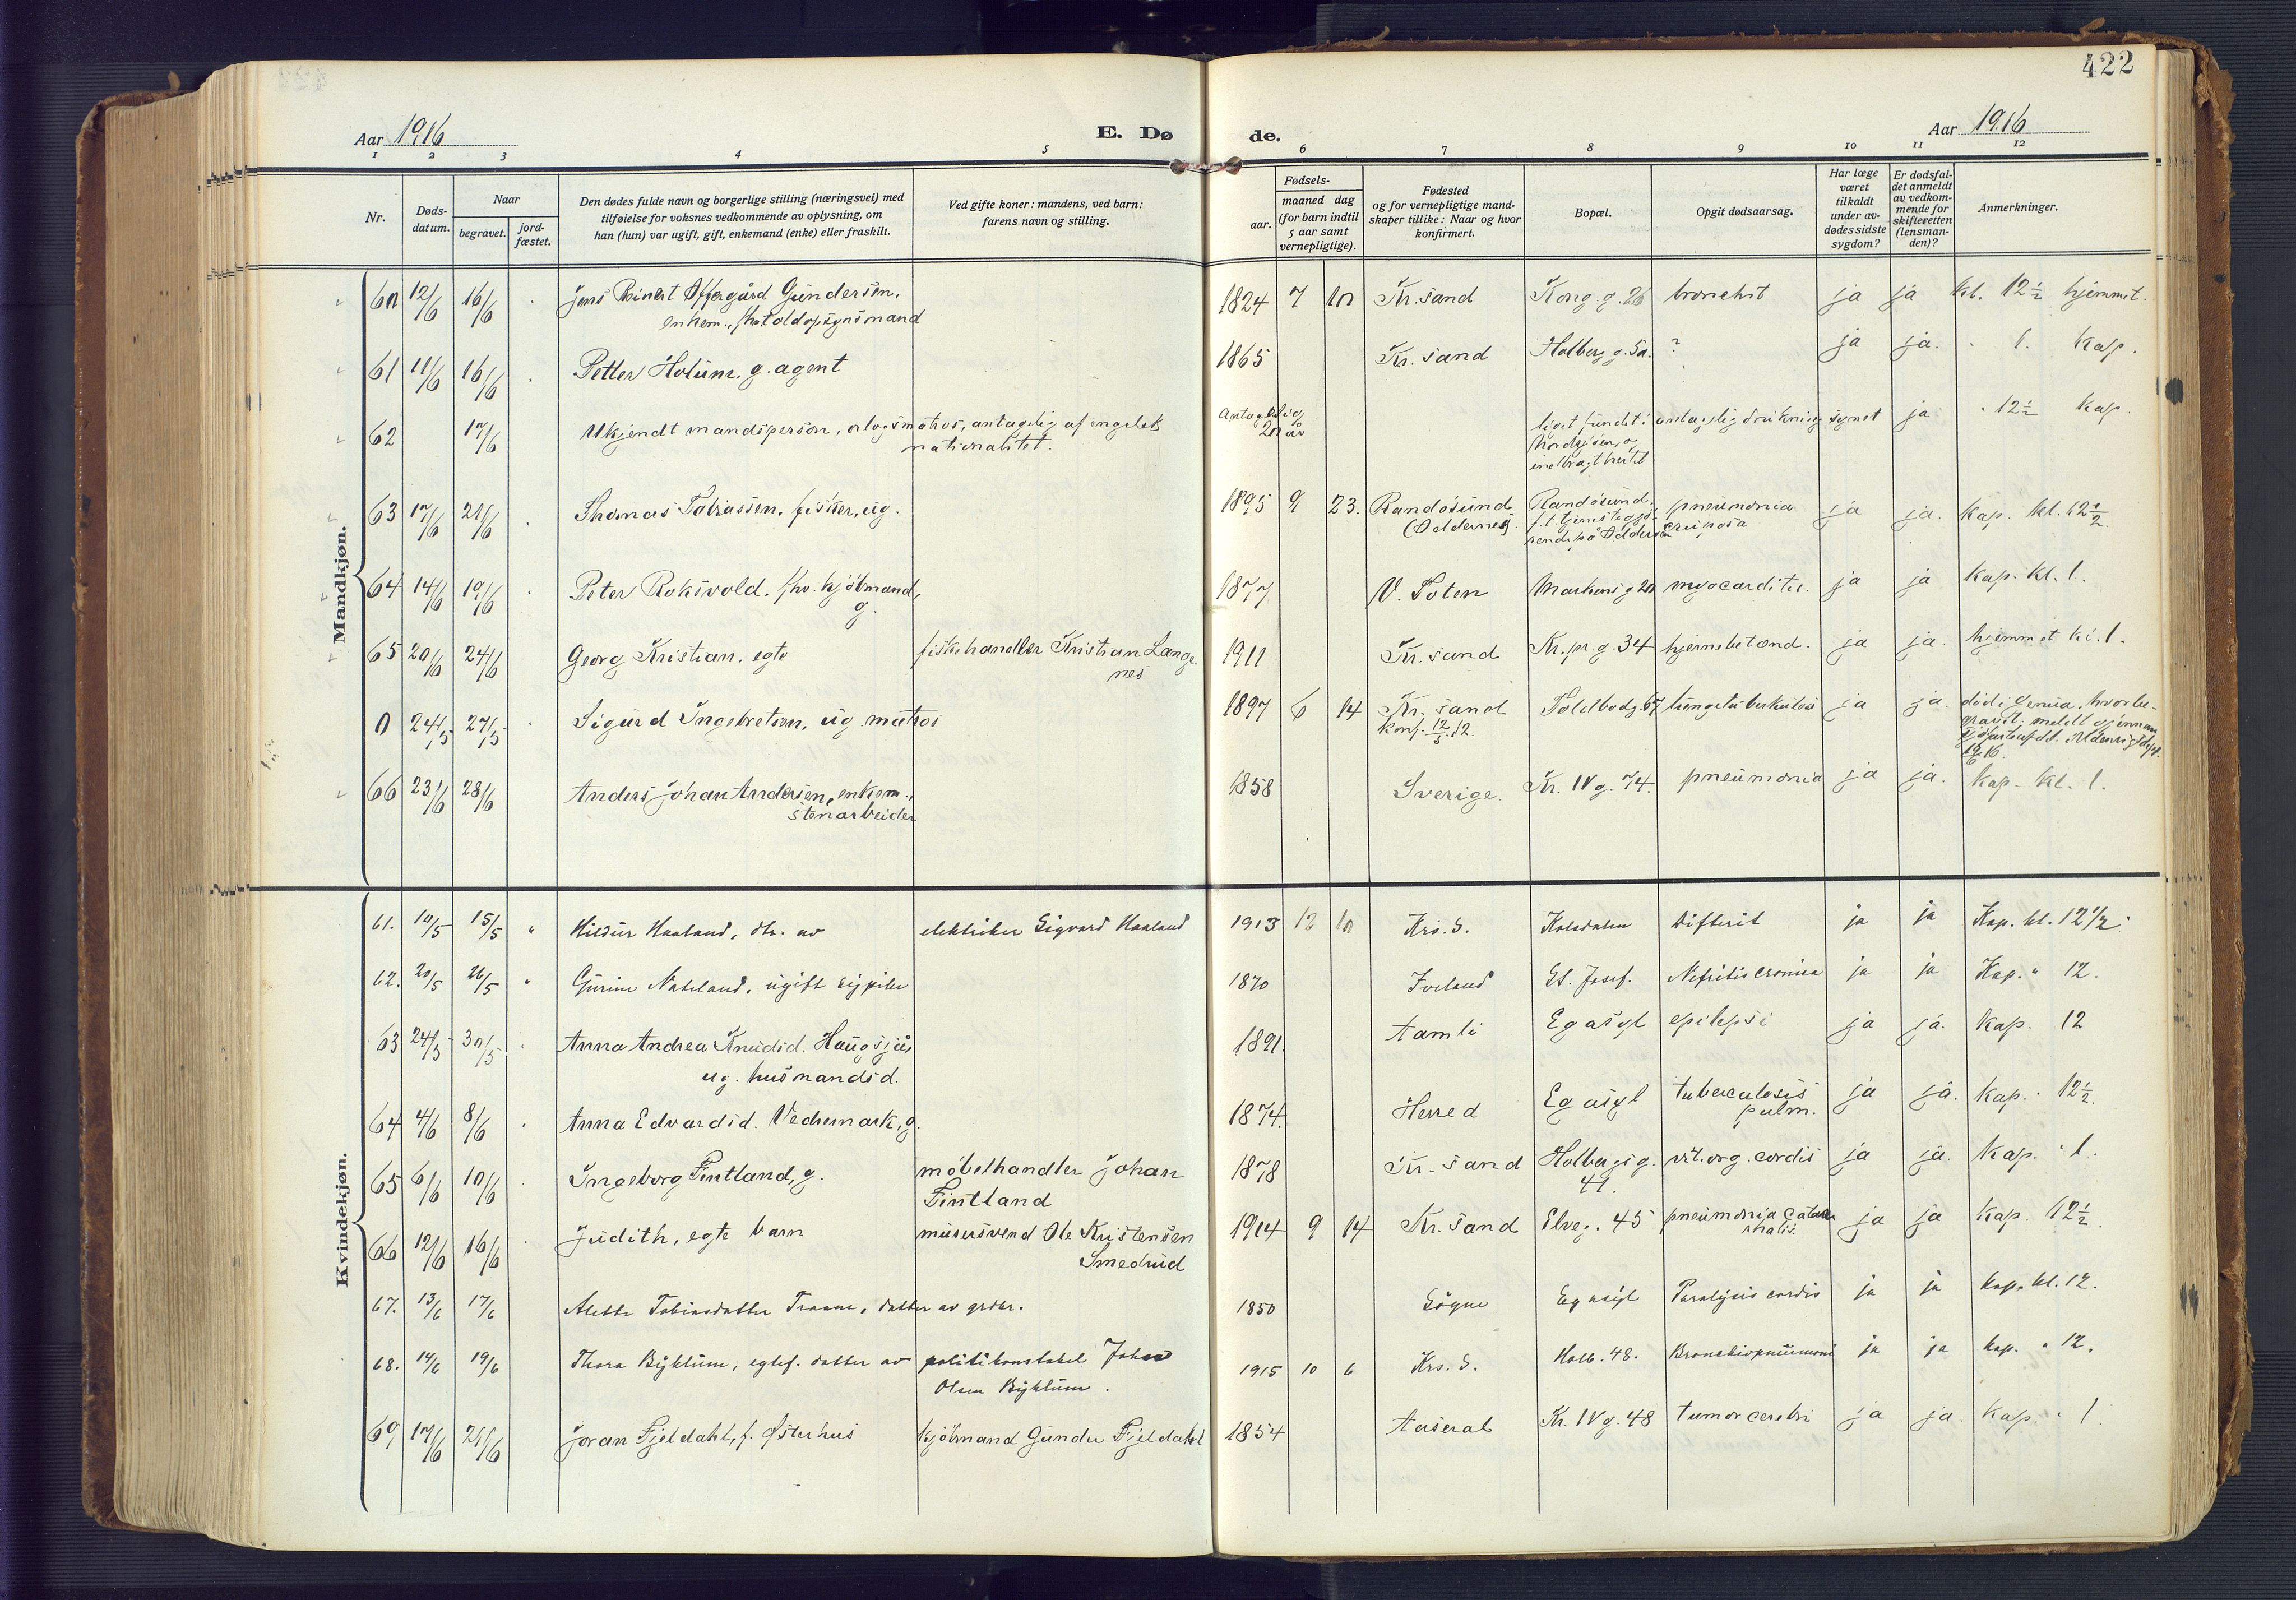 422
Aar 1916
E. Døde.
Aar 1916
1 2 3 4 5 6 7 8 9 10 11 12
Nr.
Døds-
datum.
Naar
begravet.
jord-
fæstet.
Den dødes fulde navn og borgerlige stilling (næringsvei) med
tilføielse for voksnes vedkommende av oplysning, om
han (hun) var ugift, gift, enkemand (enke) eller fraskilt.
Ved gifte koner: mandens, ved barn:
farens navn og stilling.
Fødsels-
aar.
maaned dag
(for barn indtil
5 aar samt
vernepligtige).
Fødested
og for vernepligtige mand-
skaper tillike: Naar og hvor
konfirmert.
Bopæl.
Opgit dødsaarsag.
Har læge
været
tilkaldt
under av-
dødes sidste
sygdom?
Er dødsfal-
det anmeldt
av vedkom-
mende for
skifteretten
(lensman-
den)?
Anmerkninger.
Mandkjøn.
60 12/6 16/6 Jens Reinert Offergård Gundersen, 1824 7 10 Kr.sand Kong. g. 26 bronchit ja ja kl. 12½ hjemmet.
enkem., fhv. toldopsynsmand
61 11/6 16/6 Petter Holum, g. agent 1865 Kr. sand Holberg g. 5a. ? ja ja. " 1. Kap.
62 17/6 Ukjendt mandsperson, orlogsmatros, antagelig af engelsk Antagelig liget fundet i antagelig drukning synet ja " 12½ Kap.
nationalitet. 20 år Nordsjøen, og
indbragt hertil
63 17/6 21/6 Thomas Tobiassen, fisker, ug. 1895 9 23. Randøsund Randøsund, pneumonia ja ja. Kap. kl. 12½.
(Oddernes). f.t. tjenestegjø- crupøsa
rende på Odderøen
64 14/6 19/6 Peter Roksvold, fhv. kjøbmand, 1877 V. Toten Markens g 20 myocarditis. ja ja Kap. kl. 1.
g.
65 20/6 24/6 Georg Kristian, egte fiskehandler Kristian Lange- 1911 Kr. sand Kr. pr. g. 34 hjernebetænd. ja ja. hjemmet kl. 1.
nes
0 24/5 27/5 Sigurd Ingebretsen, ug. matros 1897 6 14 Kr. sand Toldbodg 67 lungetuberkulose ja ja. død i Genua, hvor be-
konf. 12/5.12. gravet; meldt gjennem
66 23/6 28/6 Anders Johan Andersen, enkem., 1858 Sverige. Kr. IV g. 74. pneumonia ja ja. Kap. kl. 1.
stenarbeider
Kvindekjøn.
61. 10/5 15/5 " Hildur Haaland, dtr. av elektriker Sigvard Haaland 1913 12 10 Krs. S. Kolsdalen Difterit ja ja Kap. kl. 12 1/2.
62. 20/5 26/5 " Gurine Nateland, ugift sypike 1870 Iveland St. Josef. Nefritis cronica ja ja Kap. " 12.
63 24/5 30/5 " Anna Andrea Knudsd. Haugsjås 1891. Aamli Eg asyl epilepsi ja ja. Kap. 12
ug. husmandsd.
64 4/6 8/6 " Anna Edvardsd. Vedremark, g. 1874. Herred Eg asyl tuberculosis ja ja. Kap. " 12½.
pulm.
65 6/6 10/6 " Ingeborg Fintland, g. møbelhandler Johan 1878 Kr. sand Holbergs g. vit. org. cordis ja ja. Kap. " 1.
Fintland 41.
66 12/6 16/6 Judith, egte barn murersvend Ole Kristensen 1914 9 14 Kr. sand Elveg. 45 pneumonia catar- ja ja Kap. 12½.
Smedrud rhalis.
67. 13/6 17/6 Alette Tobiasdatter Traane, datter av grdbr. 1850 Søgne Eg asyl Paralysis cordis ja ja kap. kl. 12.
68. 14/6 19/6 Thora Byklum, egtef. datter av politikonstabel Johan 1915 10 6 Krs. S. Holb. 48. Bronchiopneumoni ja ja kap. " 12.
Olsen Byklum.
69, 17/6 21/6 Joran Fjeldahl, f. Østerhus kjøbmand Gunder Fjeldahl 1854 Aaseral Kr. IV g. 48 tumor cerebri ja ja Kap. " 1